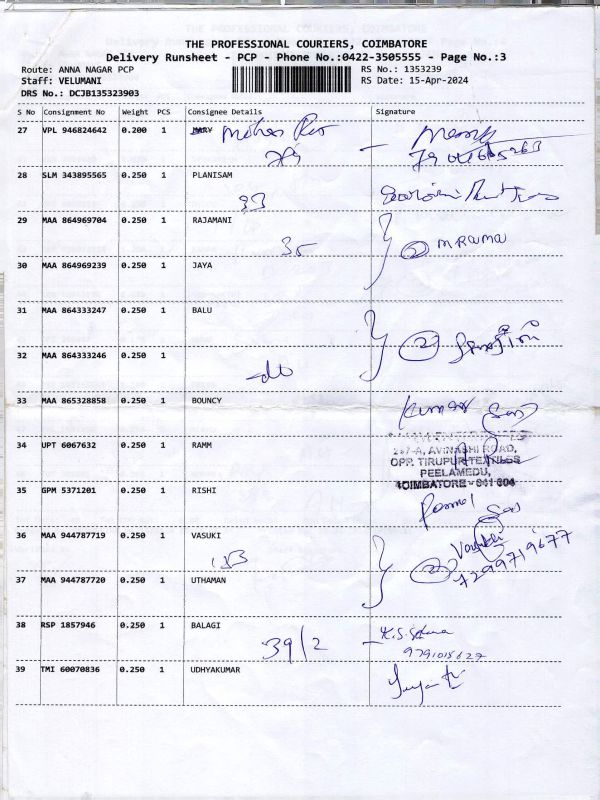 THE PROFESSIONAL COURIERS, COIMBATORE
Delivery Runsheet - PCP - Phone No.:0422-3505555 - Page No.:3
Route: ANNA NAGAR PCP RS No.: 1353239
Staff: VELUMANI RS Date: 15-Apr-2024
DRS No.: DCJB135323903
S No Consignment No Weight PCS Consignee Details Signature
27 VPL 946824642 0.200 1 MARY Mohan
28 SLM 343895565 0.250 1 PLANISAM
33
29 MAA 864969704 0.250 1 RAJAMANI
35 2 M Rama
30 MAA 864969239 0.250 1 JAYA
31 MAA 864333247 0.250 1 BALU
2
32 MAA 864333246 0.250 1
33 MAA 865328858 0.250 1 BOUNCY Kumar
34 UPT 6067632 0.250 1 RAMM
AVINASHI ROAD,
OPP. TIRUPUR TEXTILES
PEELAMEDU,
COIMBATORE - 641 004
35 GPM 5371201 0.250 1 RISHI
36 MAA 944787719 0.250 1 VASUKI
2 7299719677
37 MAA 944787720 0.250 1 UTHAMAN
38 RSP 1857946 0.250 1 BALAGI
39/2 9791015627
39 TMI 60070836 0.250 1 UDHYAKUMAR